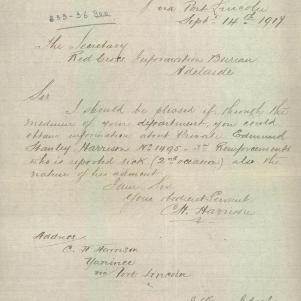 via Port Lincoln
Sept. 14th 1917
The Secretary
Red Cross Information Bureau
Adelaide
Sir
I should be pleased if through the
medium of your department, you could
obtain information about Private Edmund
Stanley Harrison No 1495 - 3rd Reinforcements
who is reported sick (2nd occasion) also the
nature of his ailment.
I am Sir
Your obedient Servant
C. H. Harrison
Address
C. H. Harrison
Yaninee
via Port Lincoln